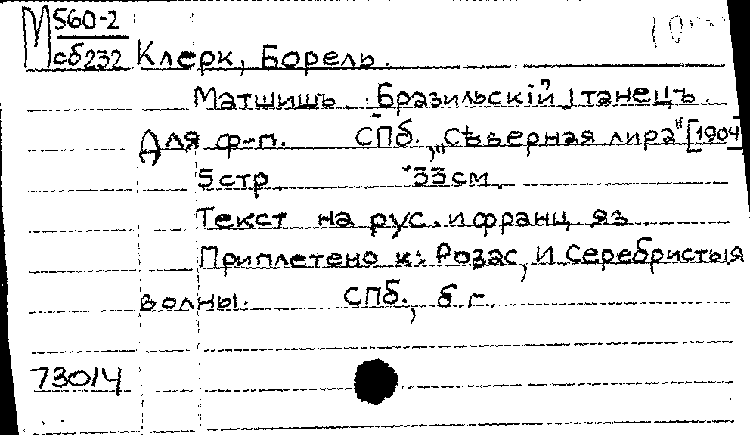 М 560-2
сб232 Клерк, Борель.
Матшишъ. Бразильскiй танецъ.
Для ф-п. СПб., „Съверная лира" [1904
5 стр 33 см.
Текст на рус. и франц яз
Приплетено к: Розас, И Серебристыя
волны. СПб., б г.
73014